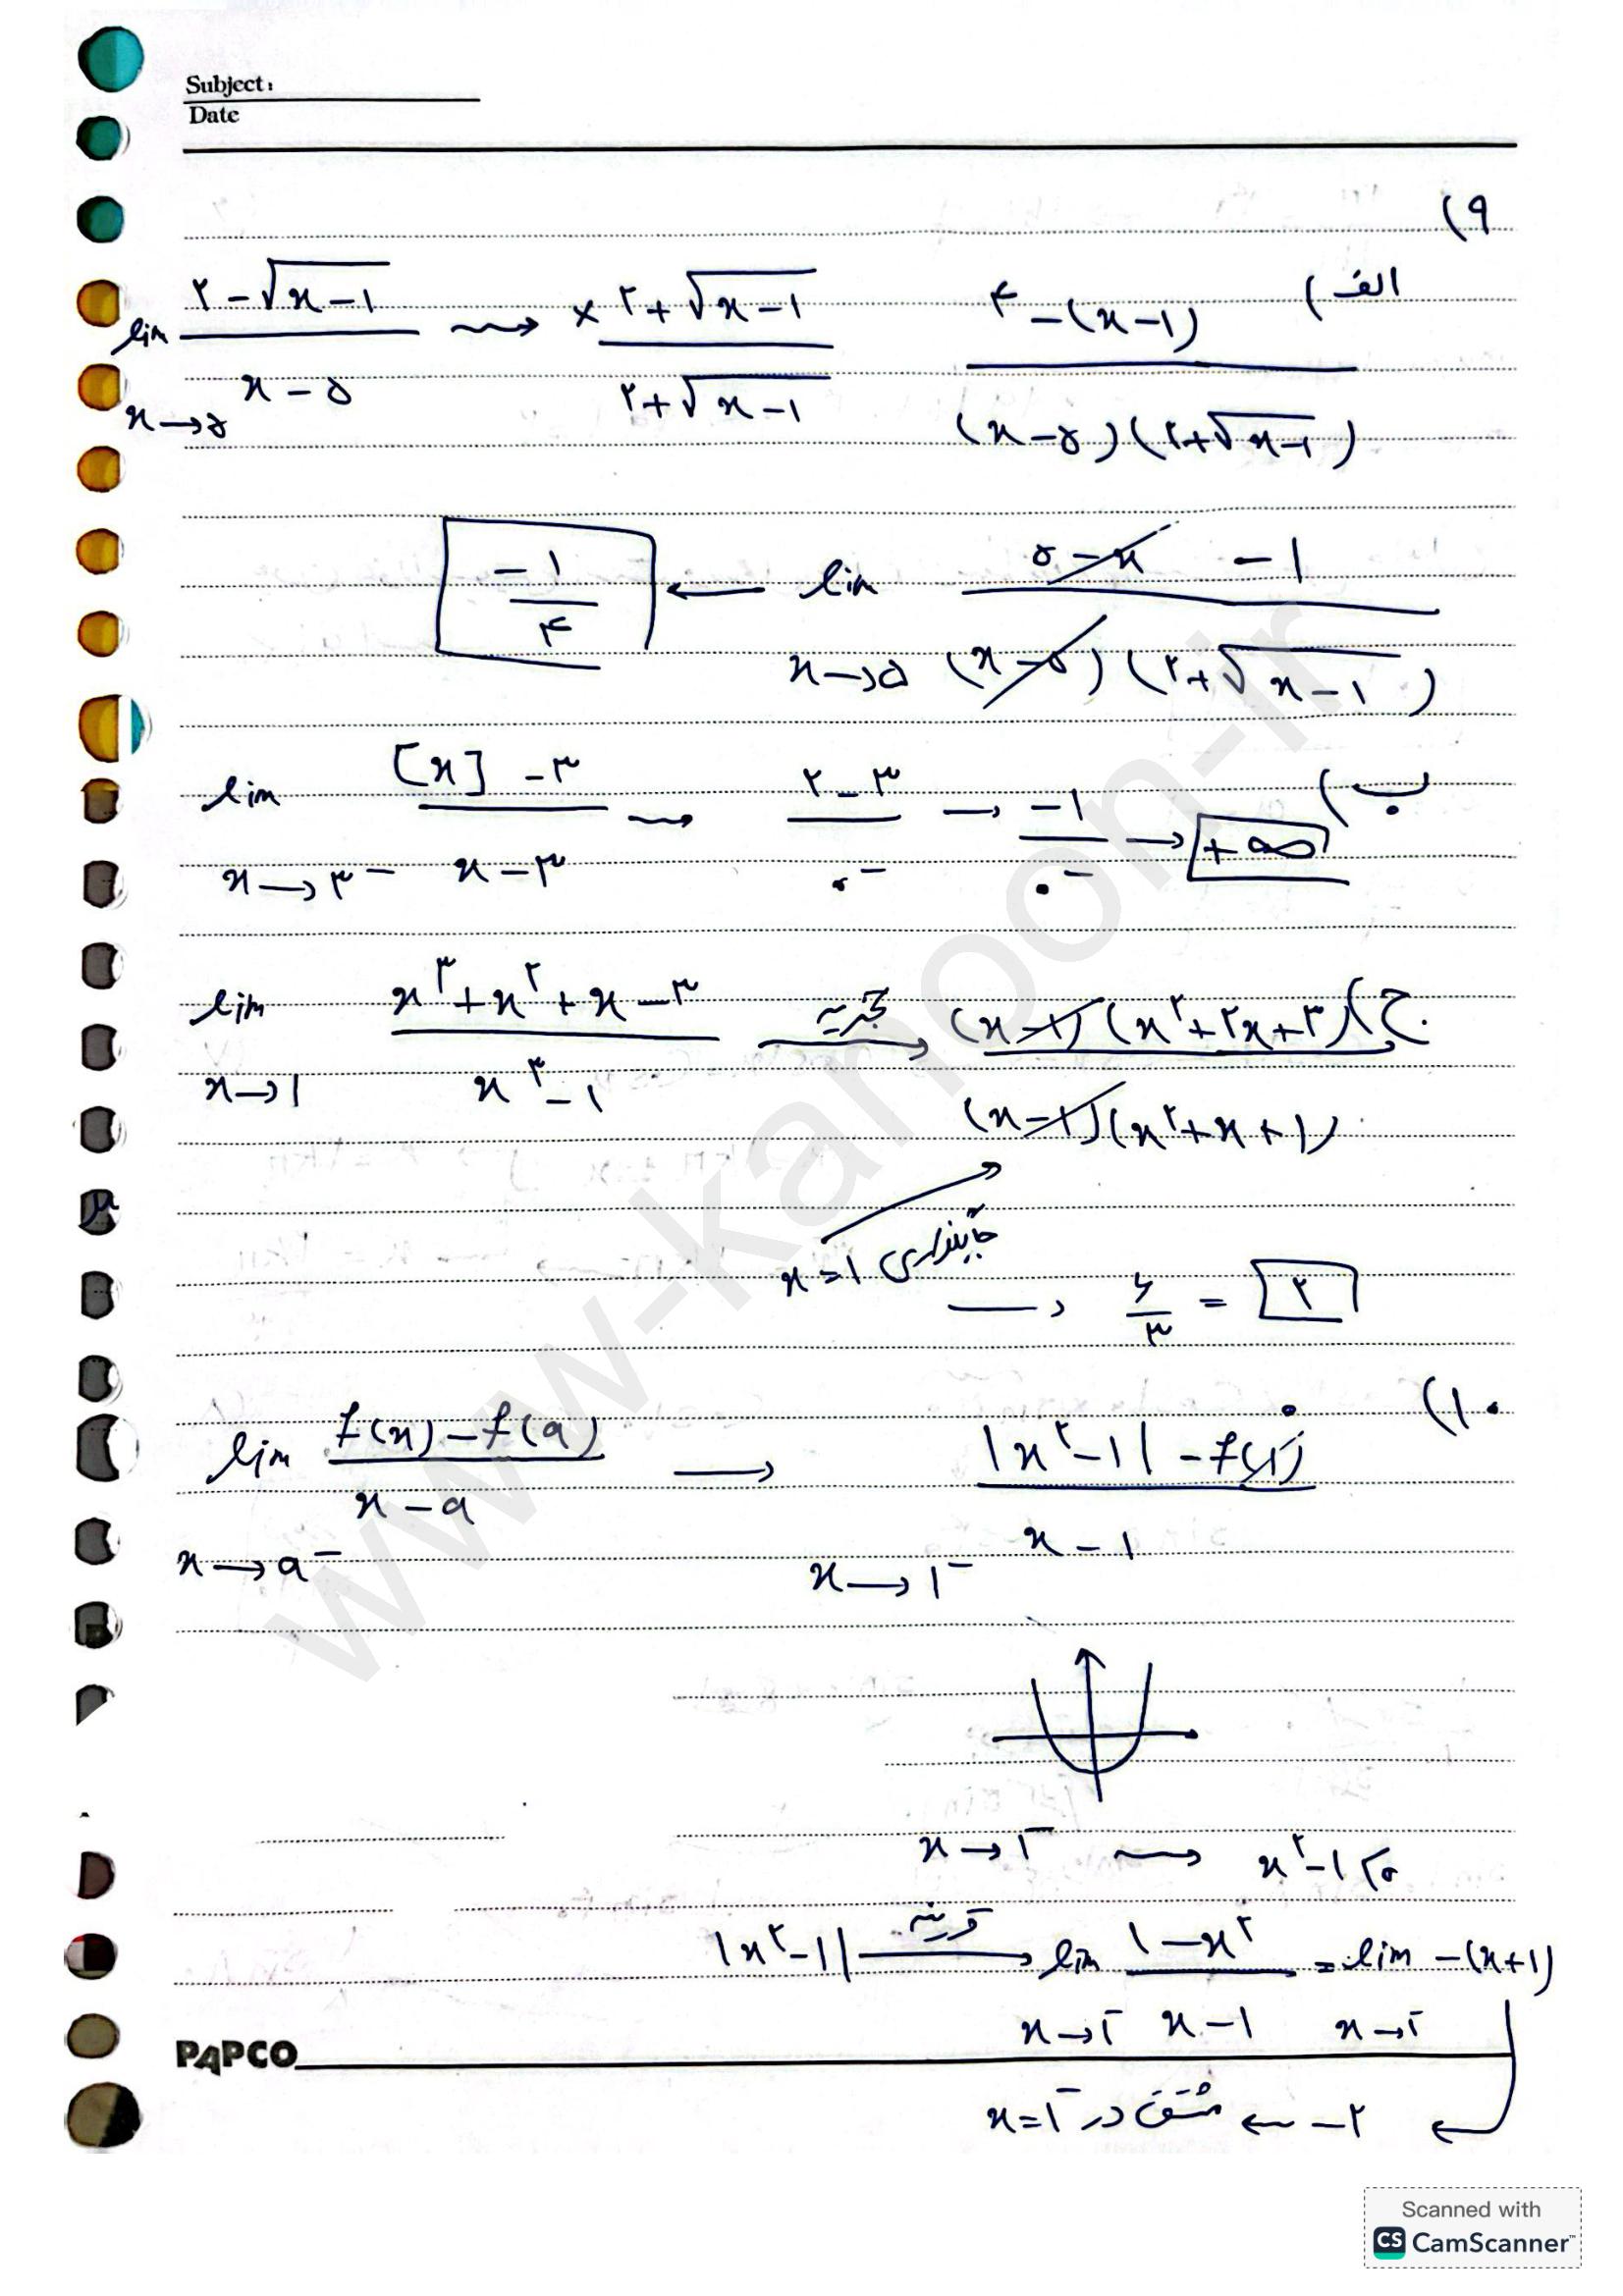 Subject:
Date
۹)
الف) lim x→۵ (۲-√(x-۱))/(x-۵) ⇝ × (۲+√(x-۱))/(۲+√(x-۱)) (۴-(x-۱))/((x-۵)(۲+√(x-۱)))
lim x→۵ (۵-x -۱)/((x-۵)(۲+√(x-۱))) ← -۱/۴
ب) lim x→۳⁻ ([x]-۳)/(x-۳) ⇝ (۲-۳)/۰⁻ → -۱/۰⁻ → +∞
ج) lim x→۱ (x³+x²+x-۳)/(x³-۱) تجزیه → ((x-۱)(x²+۲x+۳))/((x-۱)(x²+x+۱))
x=۱ جایگذاری
→ ۶/۳ = ۲
۱۰)
lim x→a⁻ (f(x)-f(a))/(x-a) → x→۱⁻ (|x²-۱|-f(۱))/(x-۱) ۰
x→۱⁻ ⇝ x²-۱<۰
|x²-۱| قرینه → lim x→۱⁻ (۱-x²)/(x-۱) = lim x→۱⁻ -(x+۱)
-۲ ← مشتق در x=۱⁻
PAPCO
www-kanoon-ir
Scanned with
CS CamScanner™